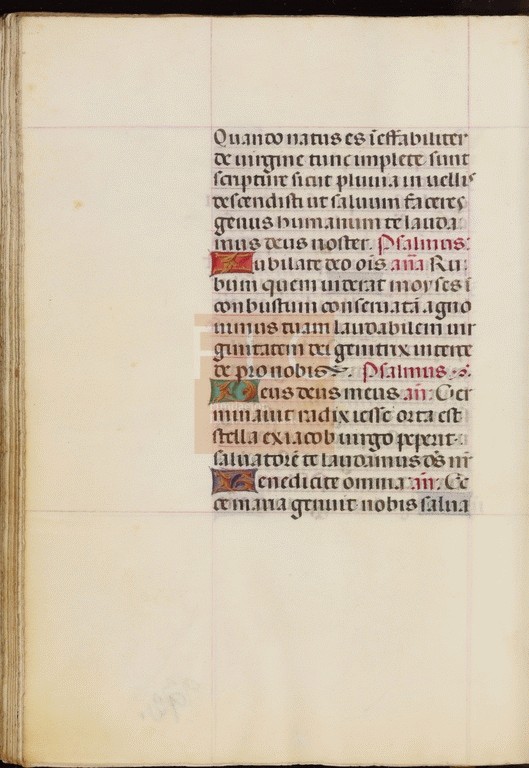 Quando natus es ieffabiliter
de virgine tunc implete sunt
scripture sicut pluvia in vellus
descendisti ut saluum faceres
genus humanum te lauda
mus deus noster. Psalmus.
Iubilate deo ois. aña Ru
bum quem viderat moyses i
conbustum conseruatã agno
uimus tuam laudabilem vir
ginitatem dei genitrix interce
de pro nobis. Psalmus.
Deus deus meus. añ. Ger
minauit radix iesse orta est
stella ex iacob virgo peperit
saluatorẽ te laudamus ds nr
Benedicite omnia. añ. Ec
ce maria genuit nobis salua